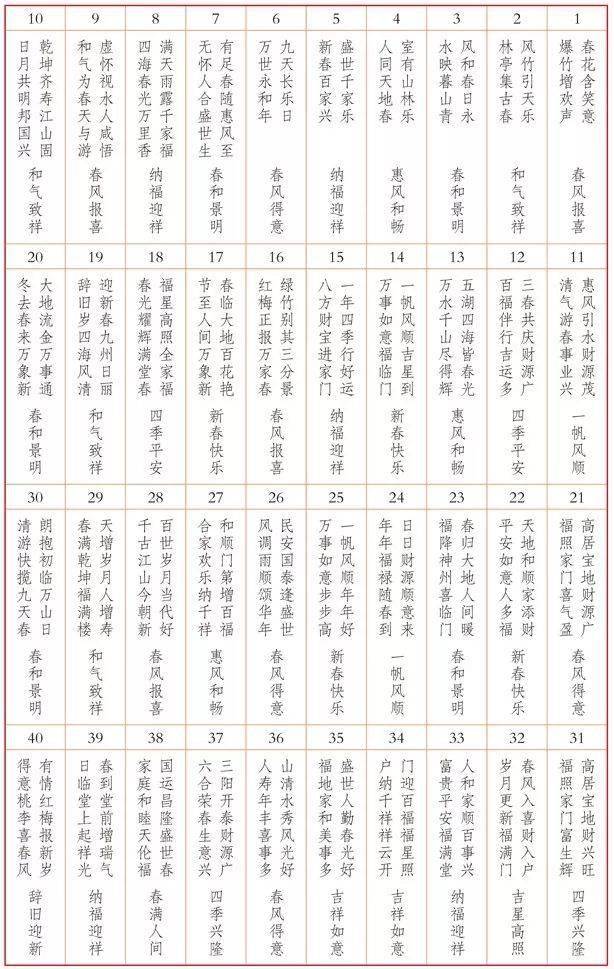 1
春花含笑意
爆竹增欢声
春风报喜
2
风竹引天乐
林亭集古春
和气致祥
3
风和春日永
水映暮山青
春和景明
4
室有山林乐
人同天地春
惠风和畅
5
盛世千家乐
新春百家兴
纳福迎祥
6
九天长乐日
万世永和年
春风得意
7
有足春随惠风至
无怀人合盛世生
春和景明
8
满天雨露千家福
四海春光万里香
纳福迎祥
9
虚怀视水人咸悟
和气为春天与游
春风报喜
10
乾坤齐寿江山固
日月共明邦国兴
和气致祥
11
惠风引水财源茂
清气游春事业兴
一帆风顺
12
三春共庆财源广
百福伴行吉运多
四季平安
13
五湖四海皆春光
万水千山尽得辉
惠风和畅
14
一帆风顺吉星到
万事如意福临门
新春快乐
15
一年四季行好运
八方财宝进家门
纳福迎祥
16
绿竹别其三分景
红梅正报万家春
春风报喜
17
春临大地百花艳
节至人间万象新
新春快乐
18
福星高照全家福
春光耀辉满堂春
四季平安
19
迎新春九州日丽
辞旧岁四海风清
和气致祥
20
大地流金万事通
冬去春来万象新
春和景明
21
高居宝地财源广
福照家门喜气盈
春风得意
22
天地和顺家添财
平安如意人多福
新春快乐
23
春归大地人间暖
福降神州喜临门
春和景明
24
日日财源顺意来
年年福禄随春到
一帆风顺
25
一帆风顺年年好
万事如意步步高
新春快乐
26
民安国泰逢盛世
风调雨顺颂华年
春风得意
27
和顺门第增百福
合家欢乐纳千祥
惠风和畅
28
百世岁月当代好
千古江山今朝新
春风报喜
29
天增岁月人增寿
春满乾坤福满楼
和气致祥
30
朗抱初临万山日
清游快揽九天春
春和景明
31
高居宝地财兴旺
福照家门富生辉
四季兴隆
32
春风入喜财入户
岁月更新福满门
吉星高照
33
人和家顺百事兴
富贵平安福满堂
纳福迎祥
34
门迎百福福星照
户纳千祥祥云开
吉祥如意
35
盛世人勤春光好
福地家和美事多
吉祥如意
36
山清水秀风光好
人寿年丰喜事多
春风得意
37
三阳开泰财源广
六合荣春生意兴
四季兴隆
38
国运昌隆盛世春
家庭和睦天伦福
春满人间
39
春到堂前增瑞气
日临堂上起祥光
纳福迎祥
40
有情红梅报新岁
得意桃李喜春风
辞旧迎新